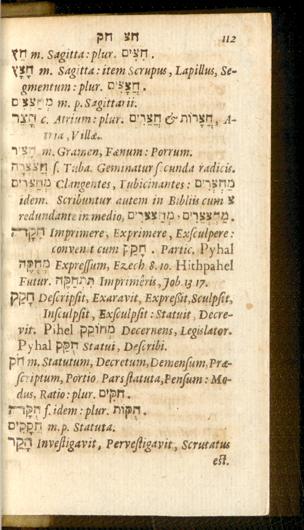 חצ חק 112
חֵץ m. Sagitta: plur. חִצִּים.
חָצָץ m. Sagitta: item Scrupus, Lapillus, Se-
gmentum: plur. חֲצָצִים.
מְחַצְצִים m. p. Sagittarii.
חָצֵר c. Atrium: plur. חֲצֵרִים & חֲצֵרוֹת, A-
tria, Villæ.
חָצִיר m. Gramen, Fœnum: Porrum.
חֲצֹצְרָה f. Tuba. Geminatur secunda radicis.
מַחְצְרִים Clangentes, Tubicinantes: מַחְצְרִים
idem. Scribuntur autem in Bibliis cum צ
redundante in medio,
חָקָה Imprimere, Exprimere, Exsculpere:
convenit cum חָקַק. Partic. Pyhal
מְחֻקֶּה Expressum, Ezech 8. 10. Hithpahel
Futur. תִּתְחַקֶּה Imprimēris, Job 13 17.
חָקַק Descripsit, Exaravit, Expressit, Sculpsit,
Insculpsit, Exsculpsit: Statuit, Decre-
vit. Pihel מְחוֹקֵק Decernens, Legislator.
Pyhal חֻקַּק Statui, Describi.
חֹק m. Statutum, Decretum, Demensum, Præ-
scriptum, Portio Pars statuta, Pensum: Mo-
dus, Ratio: plur. חֻקִּים.
חֻקָּה f. idem: plur. חֻקּוֹת.
חֲקָקִים m. p. Statuta.
חָקַר Investigavit, Pervestigavit, Scrutatus
est.